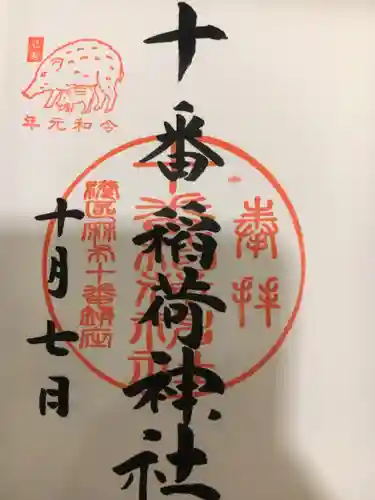 奉拝
十番稲荷神社
十月七日
己亥
令和元年
港区麻布十番鎮座